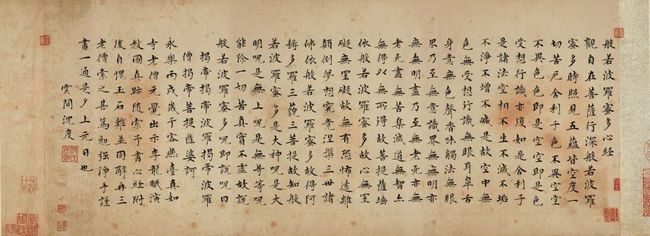 般若波羅蜜多心經
觀自在菩薩行深般若波羅
蜜多時照見五蘊皆空度一
切苦厄舍利子色不異空空
不異色色即是空空即是色
受想行識亦復如是舍利子
是諸法空相不生不滅不垢
不淨不增不減是故空中無
色無受想行識無眼耳鼻舌
身意無色聲香味觸法無眼
界乃至無意識界無無明亦
無無明盡乃至無老死亦無
老死盡無苦集滅道無智亦
無得以無所得故菩提薩埵
依般若波羅蜜多故心無罣
礙無罣礙故無有恐怖遠離
顛倒夢想究竟涅槃三世諸
佛依般若波羅蜜多故得阿
耨多羅三藐三菩提故知般
若波羅蜜多是大神呪是大
明呪是無上呪是無等等呪
能除一切苦真實不虛故說
般若波羅蜜多呪即說呪曰
揭帝揭帝波羅揭帝波羅
僧揭帝菩提薩婆訶
永樂丙戌歲予客燕臺真如
寺老僧元覺出示李龍眠演
教圖真跡隨索予書心經附
後自惧玉石難並固辭再三
老僧索之甚篤勉強淨手謹
書一通是夕上元日也
雲間沈度